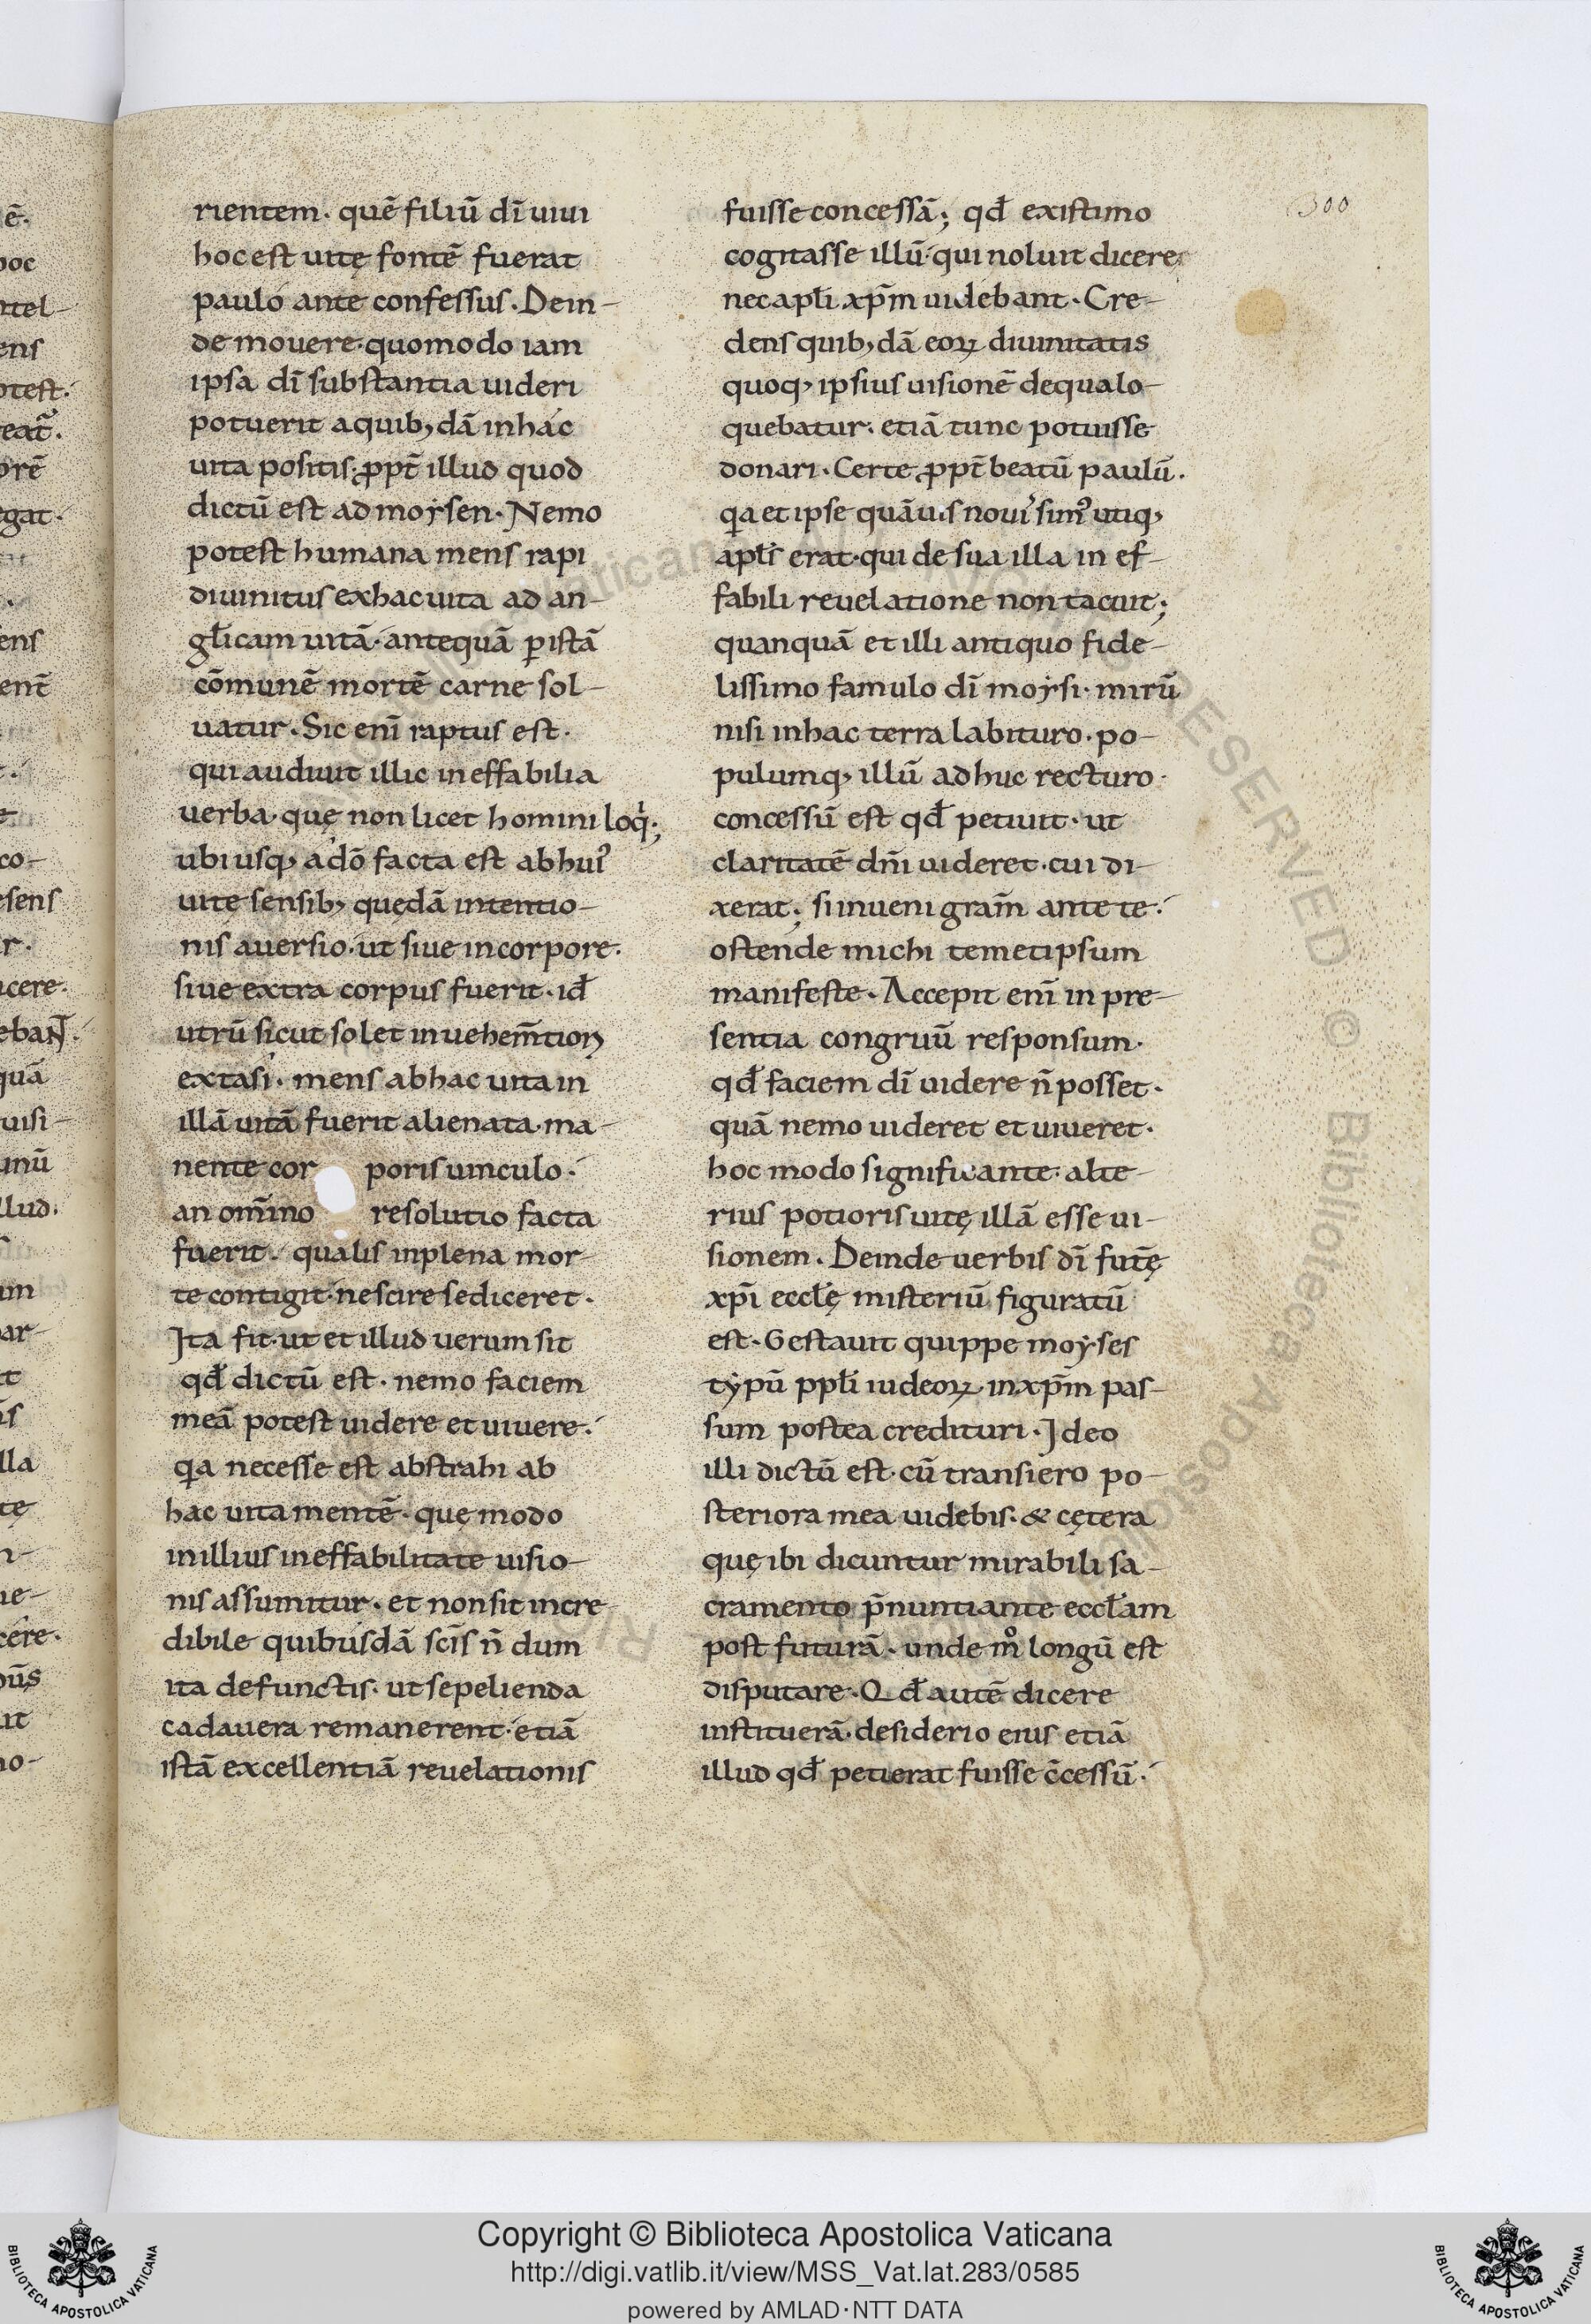 rientem. quē filiū dī uiui
hoc est uitę fontē fuerat
paulo ante confessus. Dein-
de mouere. quomodo iam
ipsa dī substantia uideri
potuerit a quib; dā in hac
uita positis. ꝓpt̄ illud quod
dictū est ad moẏsen. Nemo
potest humana mens rapi
diuinitus ex hac uita ad an-
gł̄icam uitā. antequā ꝑ istā
cōmunē mortē carne sol-
uatur. Sic enī raptus est.
qui audiuit illic ineffabilia
uerba. quę non licet homini loq̇;
ubi usq; adō facta est ab huiꝰ
uitę sensib; quędā intentio-
nis auersio. ut siue in corpore.
siue extra corpus fuerit. id̄
utrū sicut solet in uehem̄tioꝝ
extasi. mens ab hac uita in
illā uitā fuerit alienata. ma-
nente cor poris uinculo.
an om̄ino resolutio facta
fuerit. qualis in plena mor-
te contigit. nescire se diceret.
Ita fit. ut et illud uerum sit
qd̄ dictū est. nemo faciem
meā potest uidere et uiuere.
qa necesse est abstrahi ab
hac uita mentē. quę modo
in illius ineffabilitate uisio-
nis assumitur. et non sit incre-
dibile quibusdā scīs n̄ dum
ita defunctis. ut sepelienda
cadauera remanerent. etiā
istā excellentiā reuelationis
fuisse concessā; qd̄ existimo
cogitasse illū. qui noluit dicere
nec apł̄i xp̄m uidebant. Cre-
dens quib; dā eoꝝ diuinitatis
quoq; ipsius uisionē de qua lo-
quebatur. etiā tunc potuisse
donari. Certe ꝓpt̄ beatū paulū.
qa et ipse quāuis nouisimꝰ utiq;
apłs erat. qui de sua illa in ef-
fabili reuelatione non tacuit;
quanquā et illi antiquo fide-
lissimo famulo dī moẏsi. mirū
nisi in hac terra labituro. po-
pulumq; illū adhuc recturo.
concessū est qd̄ petiuit. ut
claritatē dn̄i uideret. cui di-
xerat; si inueni gram̄ ante te.
ostende michi temetipsum
manifeste. Accepit enī in pre-
sentia congruū responsum.
qd̄ faciem dī uidere n̄ posset.
quā nemo uideret et uiueret.
hoc modo significante. alte-
rius potioris uitę illā esse ui-
sionem. Deinde uerbis dī fut̄ę
xp̄i eccł̄ę misteriū figuratū
est. Gestauit quippe moẏses
tẏpū ppł̄i iudeoꝝ in xp̄m pas-
sum postea credituri. Ideo
illi dictū est. cū transiero po-
steriora mea uidebis. & cętera
quę ibi dicuntur mirabili sa-
cramento p̄nuntiante eccł̄am
post futurā. unde mͦ longū est
disputare. Qd̄ autē dicere
instituerā. desiderio eius etiā
illud qd̄ petierat fuisse c̄cessū.
300
Copyright © Biblioteca Apostolica Vaticana
http://digi.vatlib.it/view/MSS_Vat.lat.283/0585
powered by AMLAD·NTT DATA
BIBLIOTECA APOSTOLICA VATICANA
BIBLIOTECA APOSTOLICA VATICANA